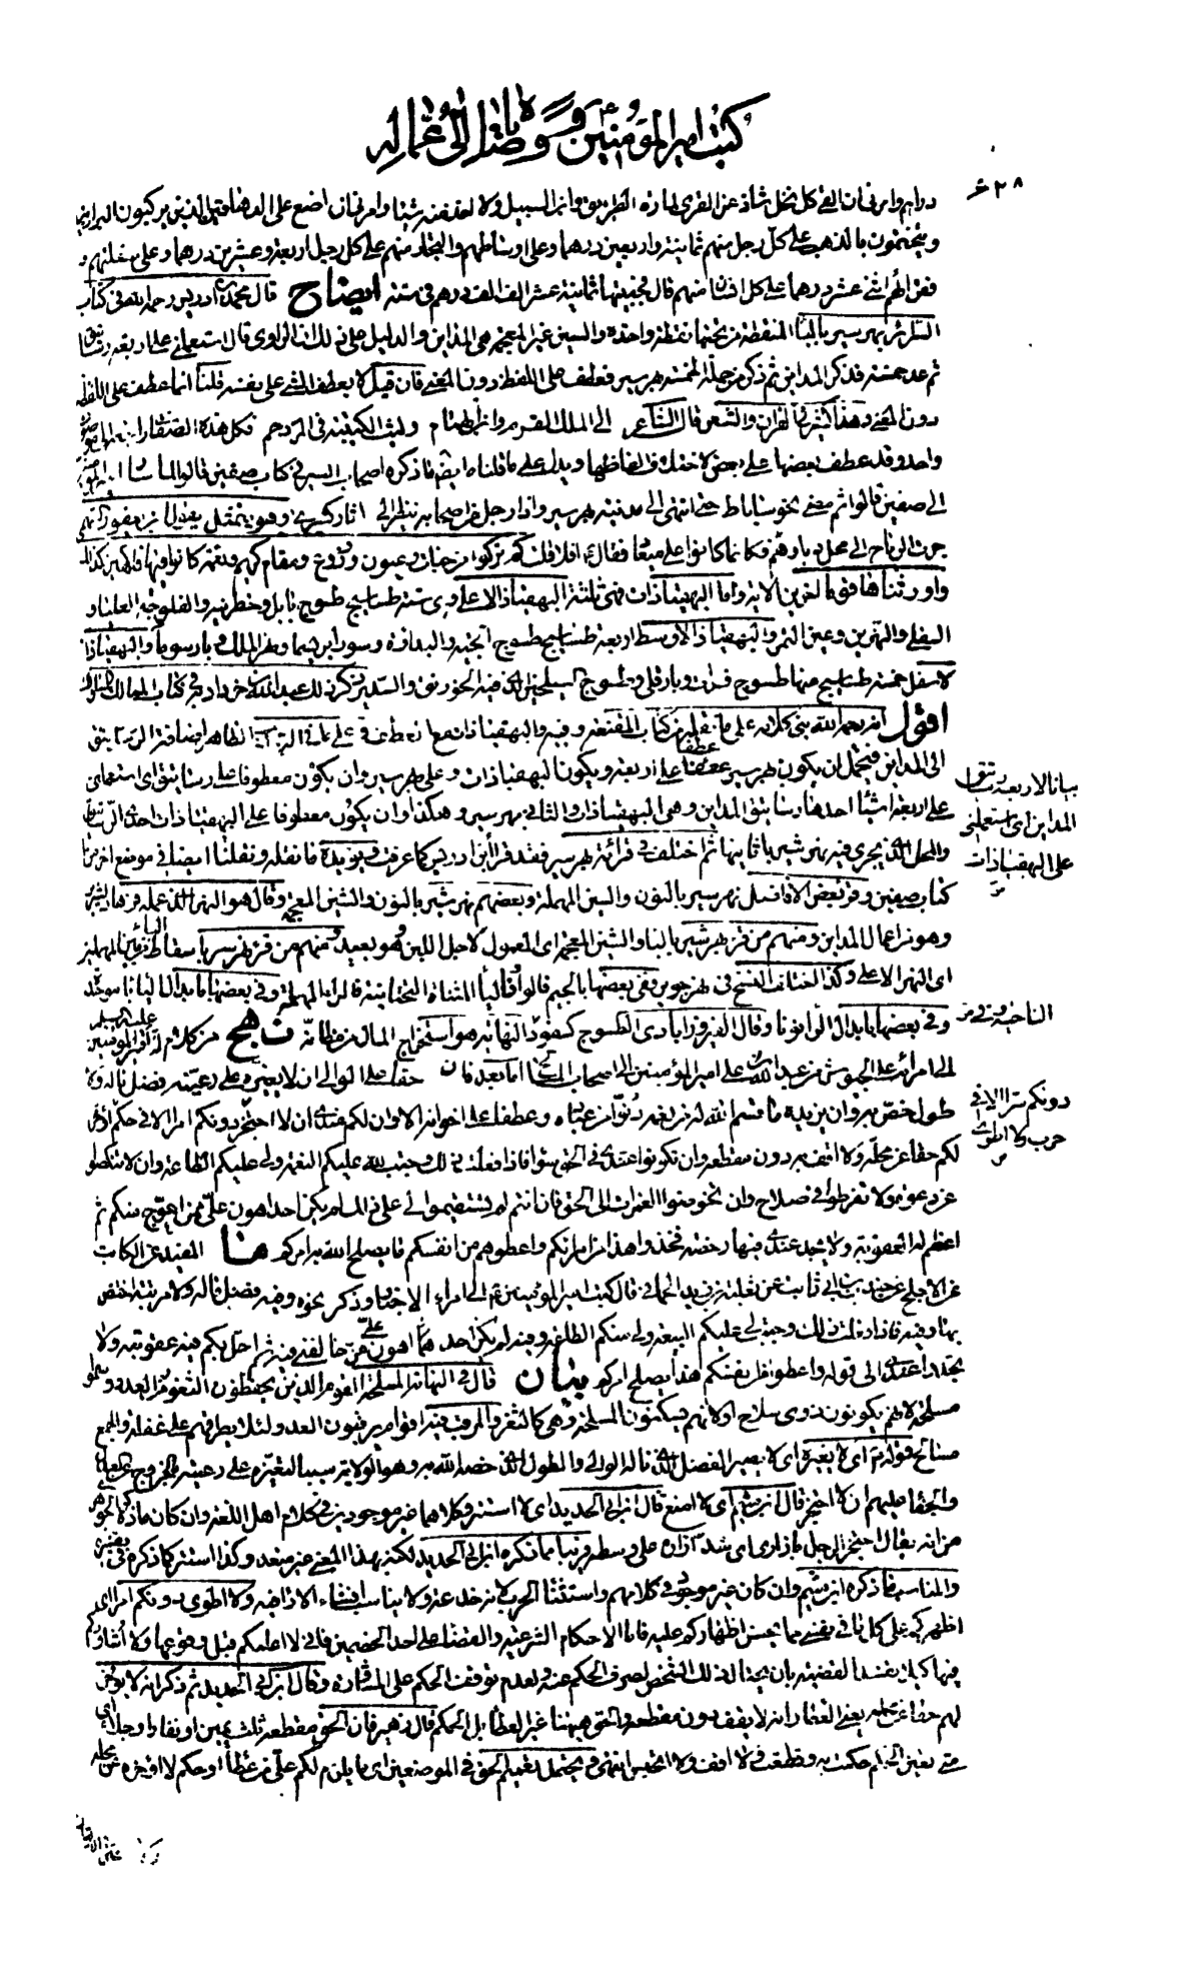 كتب امير المؤمنين ووصاياه الى عماله
٦٢٨
دراهم وامرني ان القي كل نخل شاذ عن القرى لمارة الطريق وابن السبيل ولا اخذ منه شيئا وامرني ان اضع على الدهاقين الذين يركبون البراذين
ويتختمون بالذهب على كل رجل منهم ثمانية واربعين درهما وعلى اوساطهم والتجار منهم على كل رجل اربعة وعشرين درهما وعلى سفلتهم و
فقرائهم اثني عشر درهما على كل انسان منهم قال فجبيتها ثمانية عشر الف الف درهم في سنة ايضاح قال محمد بن ادريس رحمه الله في كتاب
السرائر بهرسير بالباء المنقطة من تحتها نقطة واحدة والسين غير المعجمة هي المداين والدليل على ذلك ان الراوي قال استعملني على اربعة رساتيق
ثم عد خمسة فذكر المداين ثم ذكر من جملة الخمسة بهرسير فعطف على اللفظ دون المعنى فان قيل لا يعطف الشيء على نفسه قلنا انما عطف على اللفظ
دون المعنى وهذا كثير في القرآن والشعر قال الشاعر الى الملك القرم وابن الهمام وليث الكتيبة في المزدحم فكل هذه الصفات راجعة الى موصوف
واحد وقد عطف بعضها على بعض لاختلاف الفاظها ويدل على ما قلناه ايضا ما ذكره اصحاب السير في كتاب صفين قالوا لما سار امير المؤمنين
الى صفين قالوا ثم مضى نحو ساباط حتى انتهى الى مدينة بهرسير واذا رجل من اصحابه ينظر الى آثار كسرى وهو يتمثل بقول ابن يعفور التميمي
جرت الرياح الى محل ديارهم فكانما كانوا على ميعاد فقال افلا قلت كم تركوا من جنات وعيون وزروع ومقام كريم ونعمة كانوا فيها فاكهين كذلك
واورثناها قوما اخرين الآية واما البهقباذات فهي ثلثة البهقباذ الاعلى وهي ستة طساسيج طسوج بابل وخطرنية والفلوجة العليا و
السفلى والنهرين وعين التمر والبهقباذ الاوسط اربعة طساسيج طسوج الجبة والبداة وسورا وبربيسما ونهر الملك وباروسما والبهقباذ
الاسفل خمسة طساسيج منها طسوج فرات وبادقلى وطسوج السيلحين الذي فيه الخورنق والسدير ذكر ذلك عبد الله بن خردادبه في كتاب الممالك والمسالك
الى المداين فيحتمل ان يكون بهرسير عطفا على اربعة ويكون البهقباذات وعلى بهرسير وان يكون معطوفا على رساتيق اي استعملني
على اربعة اشياء احدها رساتيق المداين وهي البهقباذات والثاني بهرسير وهكذا وان يكون معطوفا على البهقباذات احد الرساتيق
والمحل الذي يجري فيه نهرشير باقاينها ثم اختلف في قرائة بهرسير فقد قرأ ابن ادريس كما عرفت ويؤيده ما نقله ونقلنا ايضا في موضع اخر من
كتاب صفين وقرأ بعض الافاضل نهرسير بالنون والسين المهملة وبعضهم نهرشير بالنون والشين المعجمة وقال هو النهر الذي عمله فرهاد لشيرين
وهو من اعمال المداين ومنهم من قرأ بهرشير بالباء والشين المعجمة اي المعمول لاجل اللبن وهو بعيد ومنهم من قرأ نهرسر باسقاط
اي النهر الاعلى وكذا اختلف النسخ في نهر جوبر ففي بعضها بالجيم قالوا والياء المثناة التحتانية والراء المهملة وفي بعضها بابدال الياء باء موحدة
وفي بعضها بابدال الراء نونا وقال الفيروزآبادي الطسوج كسفود النهاية هو استخراج المال من مظانه نهج من كلام له
الى امرائه على الجيوش من عبد الله علي امير المؤمنين الى اصحاب المسالح اما بعد فان حقا على الوالي ان لا يغيره على رعيته فضل ناله ولا
طول خص به وان يزيده ما قسم الله له من نعمه دنوا من عباده وعطفا على اخوانه الا وان لكم عندي ان لا احتجز دونكم امرا الا في حكم ولا اؤخر
لكم حقا عن محله ولا اقف به دون مقطعه وان تكونوا عندي في الحق سواء فاذا فعلت ذلك وجبت لله عليكم النعمة ولي عليكم الطاعة وان لا تنكصوا
عن دعوة ولا تفرطوا في صلاح وان تخوضوا الغمرات الى الحق فان انتم لم تستقيموا لي على ذلك لم يكن احد اهون علي ممن اعوج منكم ثم
اعظم له العقوبة ولا يجد عندي فيها رخصة فخذوا هذا من امرائكم واعطوهم من انفسكم ما يصلح الله به امركم ما المفيد عن الكاتب
عن الاجلح عن حبيب بن ابي ثابت عن ثعلبة بن يزيد الحماني قال كتب امير المؤمنين الى امراء الاجناد وذكر نحوه وفيه فضل ناله ولا مرتبة اختص
بها وفيه فاذا فعلت ذلك وجبت لي عليكم البيعة ولي منكم الطاعة وفيه لم يكن احد اهون علي ممن خالفني فيه ثم احل بكم فيه عقوبته ولا
تجدوا عندي الى قوله واعطوا من انفسكم هذا يصلح امركم بيان قال في النهاية المسلحة القوم الذين يحفظون الثغور من العدو وسموا
مسلحة لانهم يكونون ذوي سلاح او لانهم يسكنون المسلحة وهي كالثغر والمرقب فيه اقوام يرقبون العدو لئلا يطرقهم على غفلة والجمع
مسالح قوله اي لا يغيره اي لا يصير الفضل الذي ناله الوالي والطول الذي خصه الله به وهو الولاية سببا لتغيره على رعيته بالخروج عن العدل
والجفاء عليهم ان لا احتجز قال ابن ميثم اي لا امنع قال ابن ابي الحديد اي لا استتر وكلاهما غير موجودين في كلام اهل اللغة وان كان ما ذكره الجوهري
من انه يقال احتجز الرجل بازاره اي شد ازاره على وسطه قريبا مما ذكره ابن ابي الحديد لكنه بهذا المعنى غير متعد وكذا استتر كما ذكره في تفسيره
والمناسب ما ذكره ابن ميثم وان كان غير موجود في كلامهم واستثناء الحرب لانه خدعة ولا يناسب افشاء الآراء فيه ولا اطوي دونكم امرا اي
اظهركم على كل ما في نفسي مما يحسن اظهاركم عليه فاما الاحكام الشرعية والقضاء على احد الخصمين فاني لا اعلمكم قبل وقوعها ولا اشاوركم
فيها كيلا يفسد القضية بان يحتال ذلك الشخص لصرف الحكم عنه ولعدم توقف الحكم على المشاورة وقال ابن ابي الحديد ثم ذكر انه لا يؤخر
لهم حقا عن محله يعني العطاء وانه لا يقف دون مقطعه والحق ههنا غير العطاء بل الحكم قال زهير فان الحق مقطعه ثلث يمين او نفار او جلاء اي
متى تعين الحكم حكمت به وقطعت ولا اقف ولا اتحبس انتهى ويحتمل تعميم الحق في الموضعين اي ما يلزم لكم علي من عطاء او حكم لا اؤخره عن محله
بيانا لاربعة رساتيق
المداين اي استعملني
على البهقباذات
الناحية وفي
دونكم سرا الا في
حرب ولا اطوي